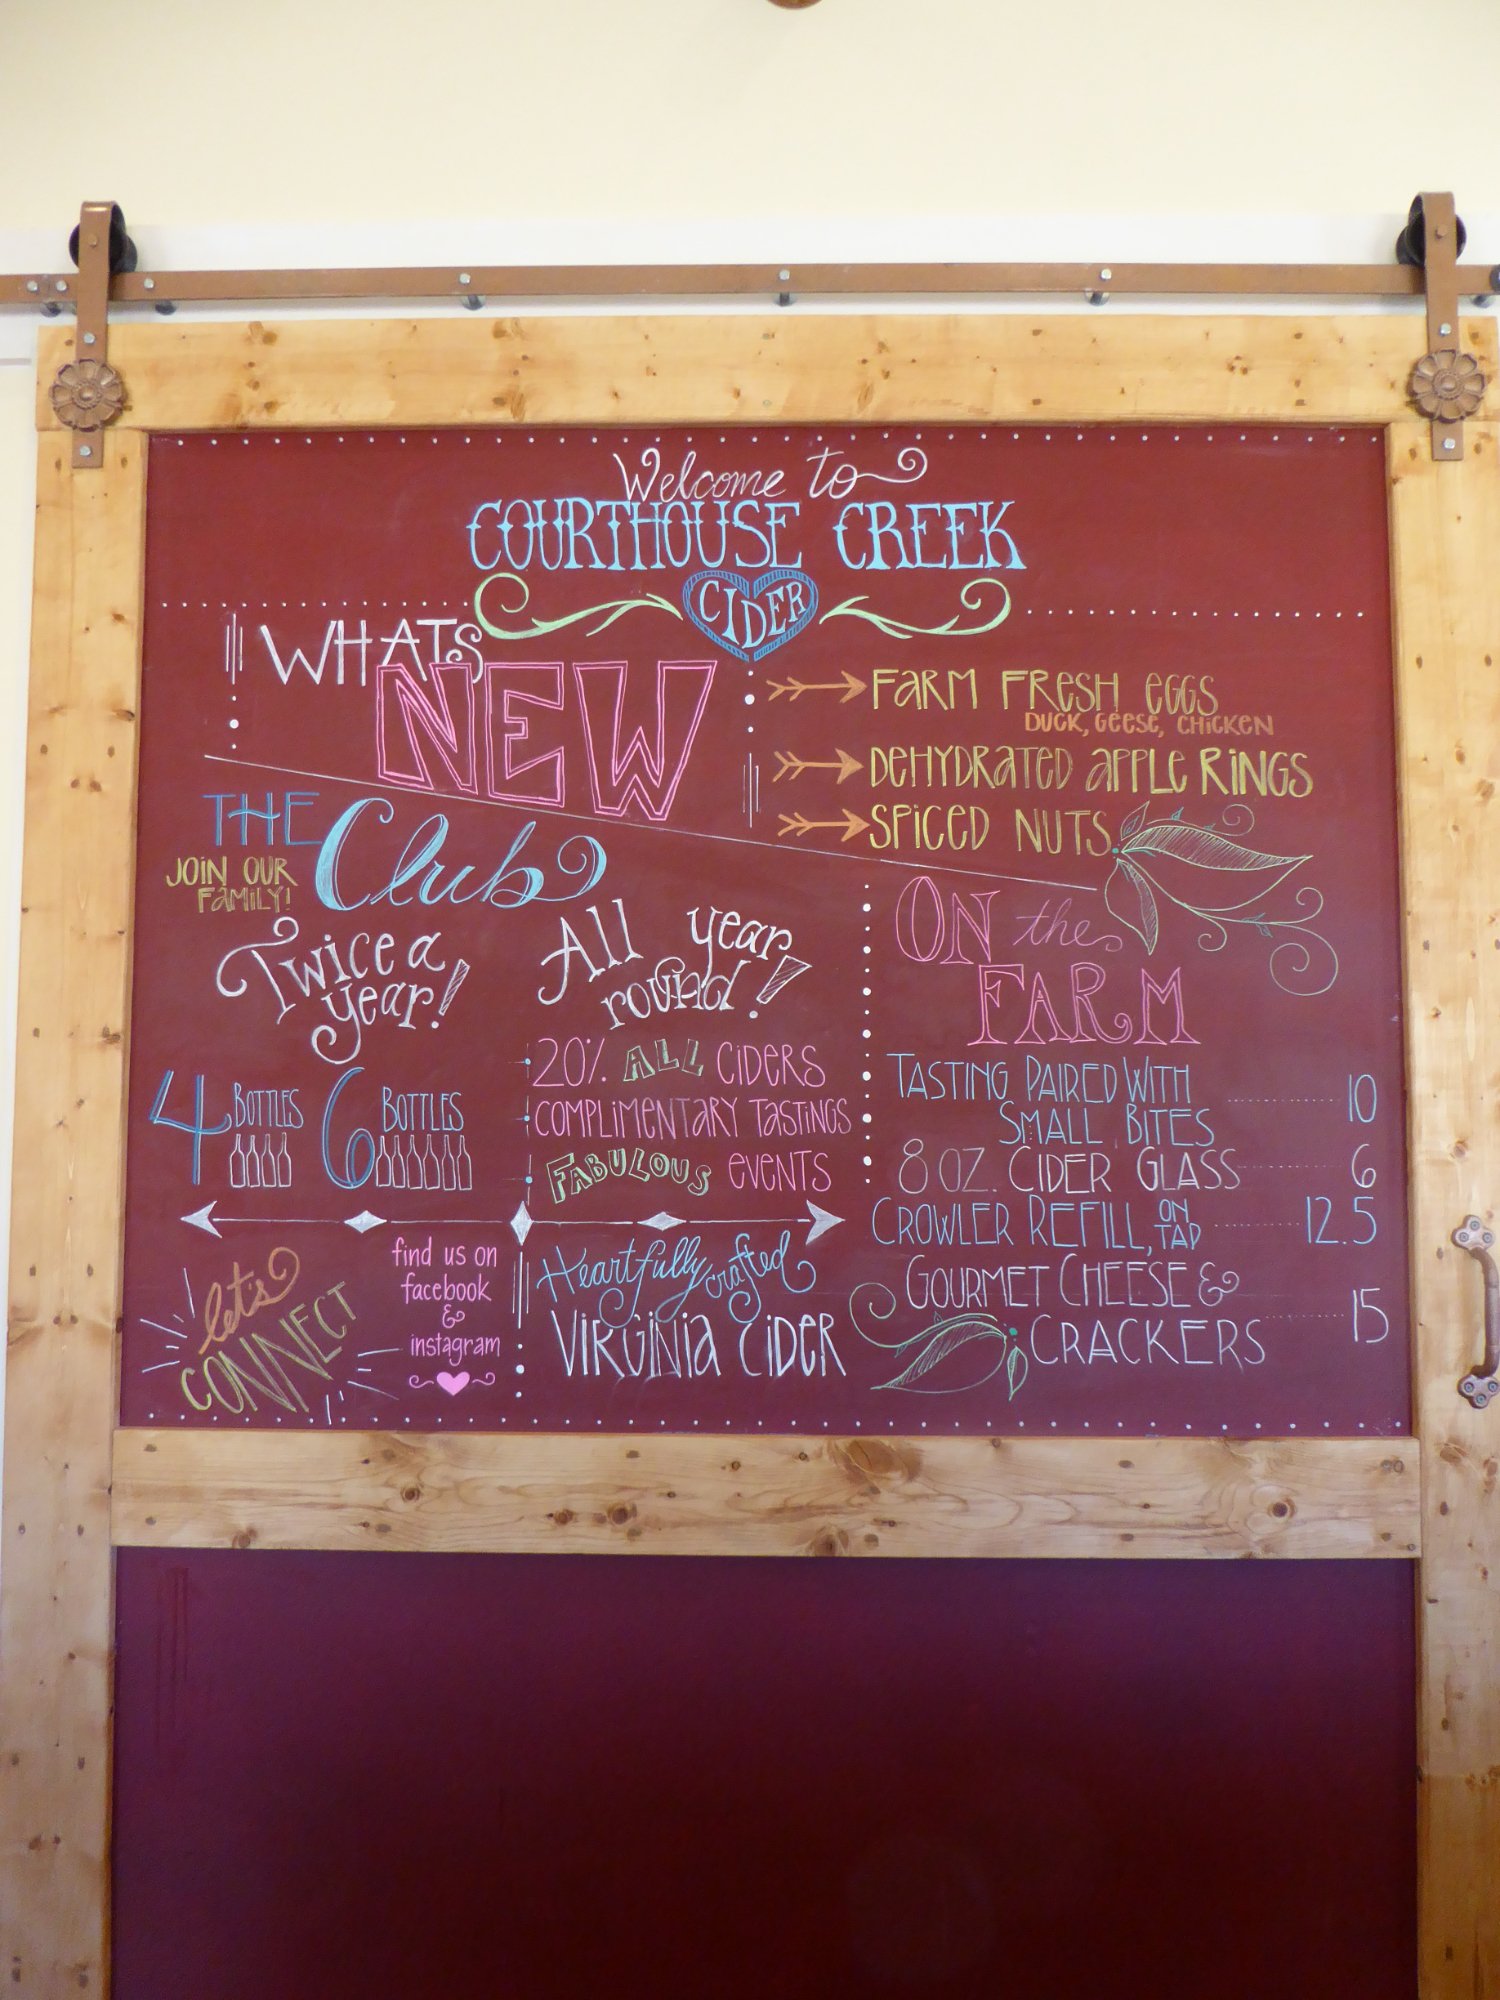 Welcome to
COURTHOUSE CREEK
CIDER
WHATS
NEW
FARM FRESH EGGS
DUCK, GEESE, CHICKEN
DEHYDRATED APPLE RINGS
SPICED NUTS
THE Club
JOIN OUR
FAMILY!
Twice a
year!
4 BOTTLES 6 BOTTLES
All year
round!
20% ALL CIDERS
COMPLIMENTARY TASTINGS
FABULOUS EVENTS
ON the
FARM
TASTING PAIRED WITH
SMALL BITES 10
8 OZ. CIDER GLASS 6
CROWLER REFILL, ON TAP 12.5
GOURMET CHEESE &
CRACKERS 15
let's
CONNECT
find us on
facebook
&
instagram
Heartfully crafted
VIRGINIA CIDER